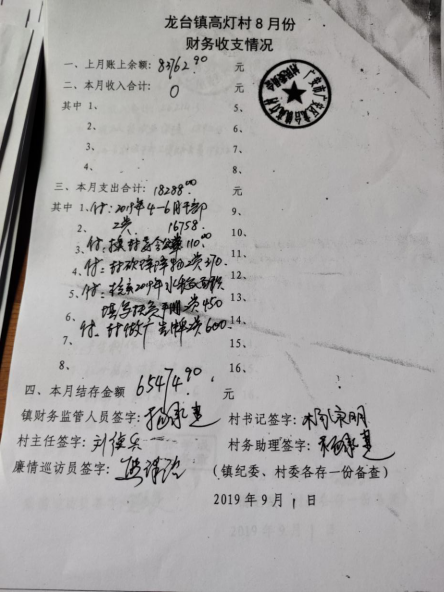 龙台镇高灯村8月份
财务收支情况
一、上月账上余额：83762.90 元
二、本月收入合计：0 元
其中 1、 5、
2、 6、
3、 7、
4、 8、
三、本月支出合计：18288.00 元
其中 1、付：2019年4-6月干部 9、
2、 2类 16758 10、
3、付：换村委会公章110.00 11、
4、付：村 2类370. 12、
5、付：2019年水 13、
填写扶贫手册2类450 14、
6、 15、
7、付：村做广告牌2类600 16、
8、 16、
四、本月结存金额 65474.90 元
镇财务监管人员签字： 村书记签字：
村主任签字： 村务助理签字：
廉情巡访员签字： （镇纪委、村委各存一份备查）
2019年9月1日